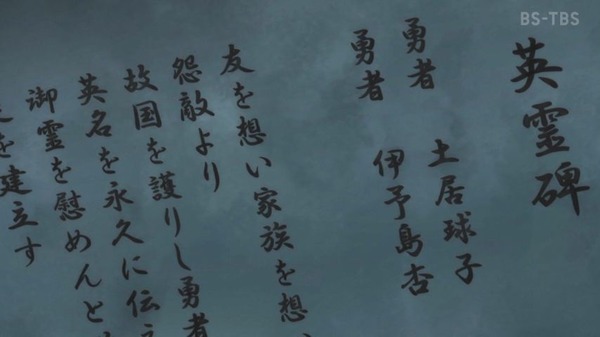 BS-TBS
英霊碑
勇者 土居球子
勇者 伊予島杏
友を想い家族を想
怨敵より
故国を護りし勇者
英名を永久に伝
御霊を慰めんと
を建立す